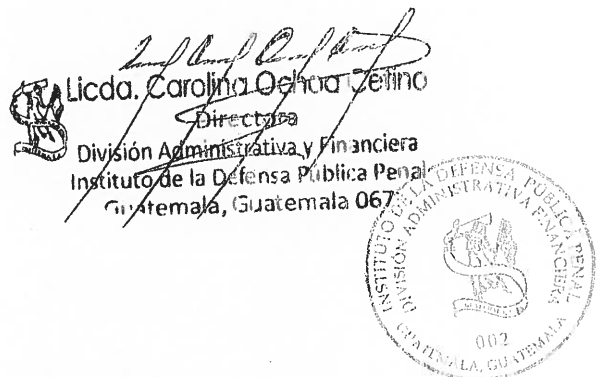 Licda. Carolina Ochoa Cetino
Directora
División Administrativa y Financiera
Instituto de la Defensa Pública Penal
Guatemala, Guatemala 067
INSTITUTO DE LA DEFENSA PÚBLICA PENAL
DIVISIÓN ADMINISTRATIVA FINANCIERA
002
GUATEMALA, GUATEMALA